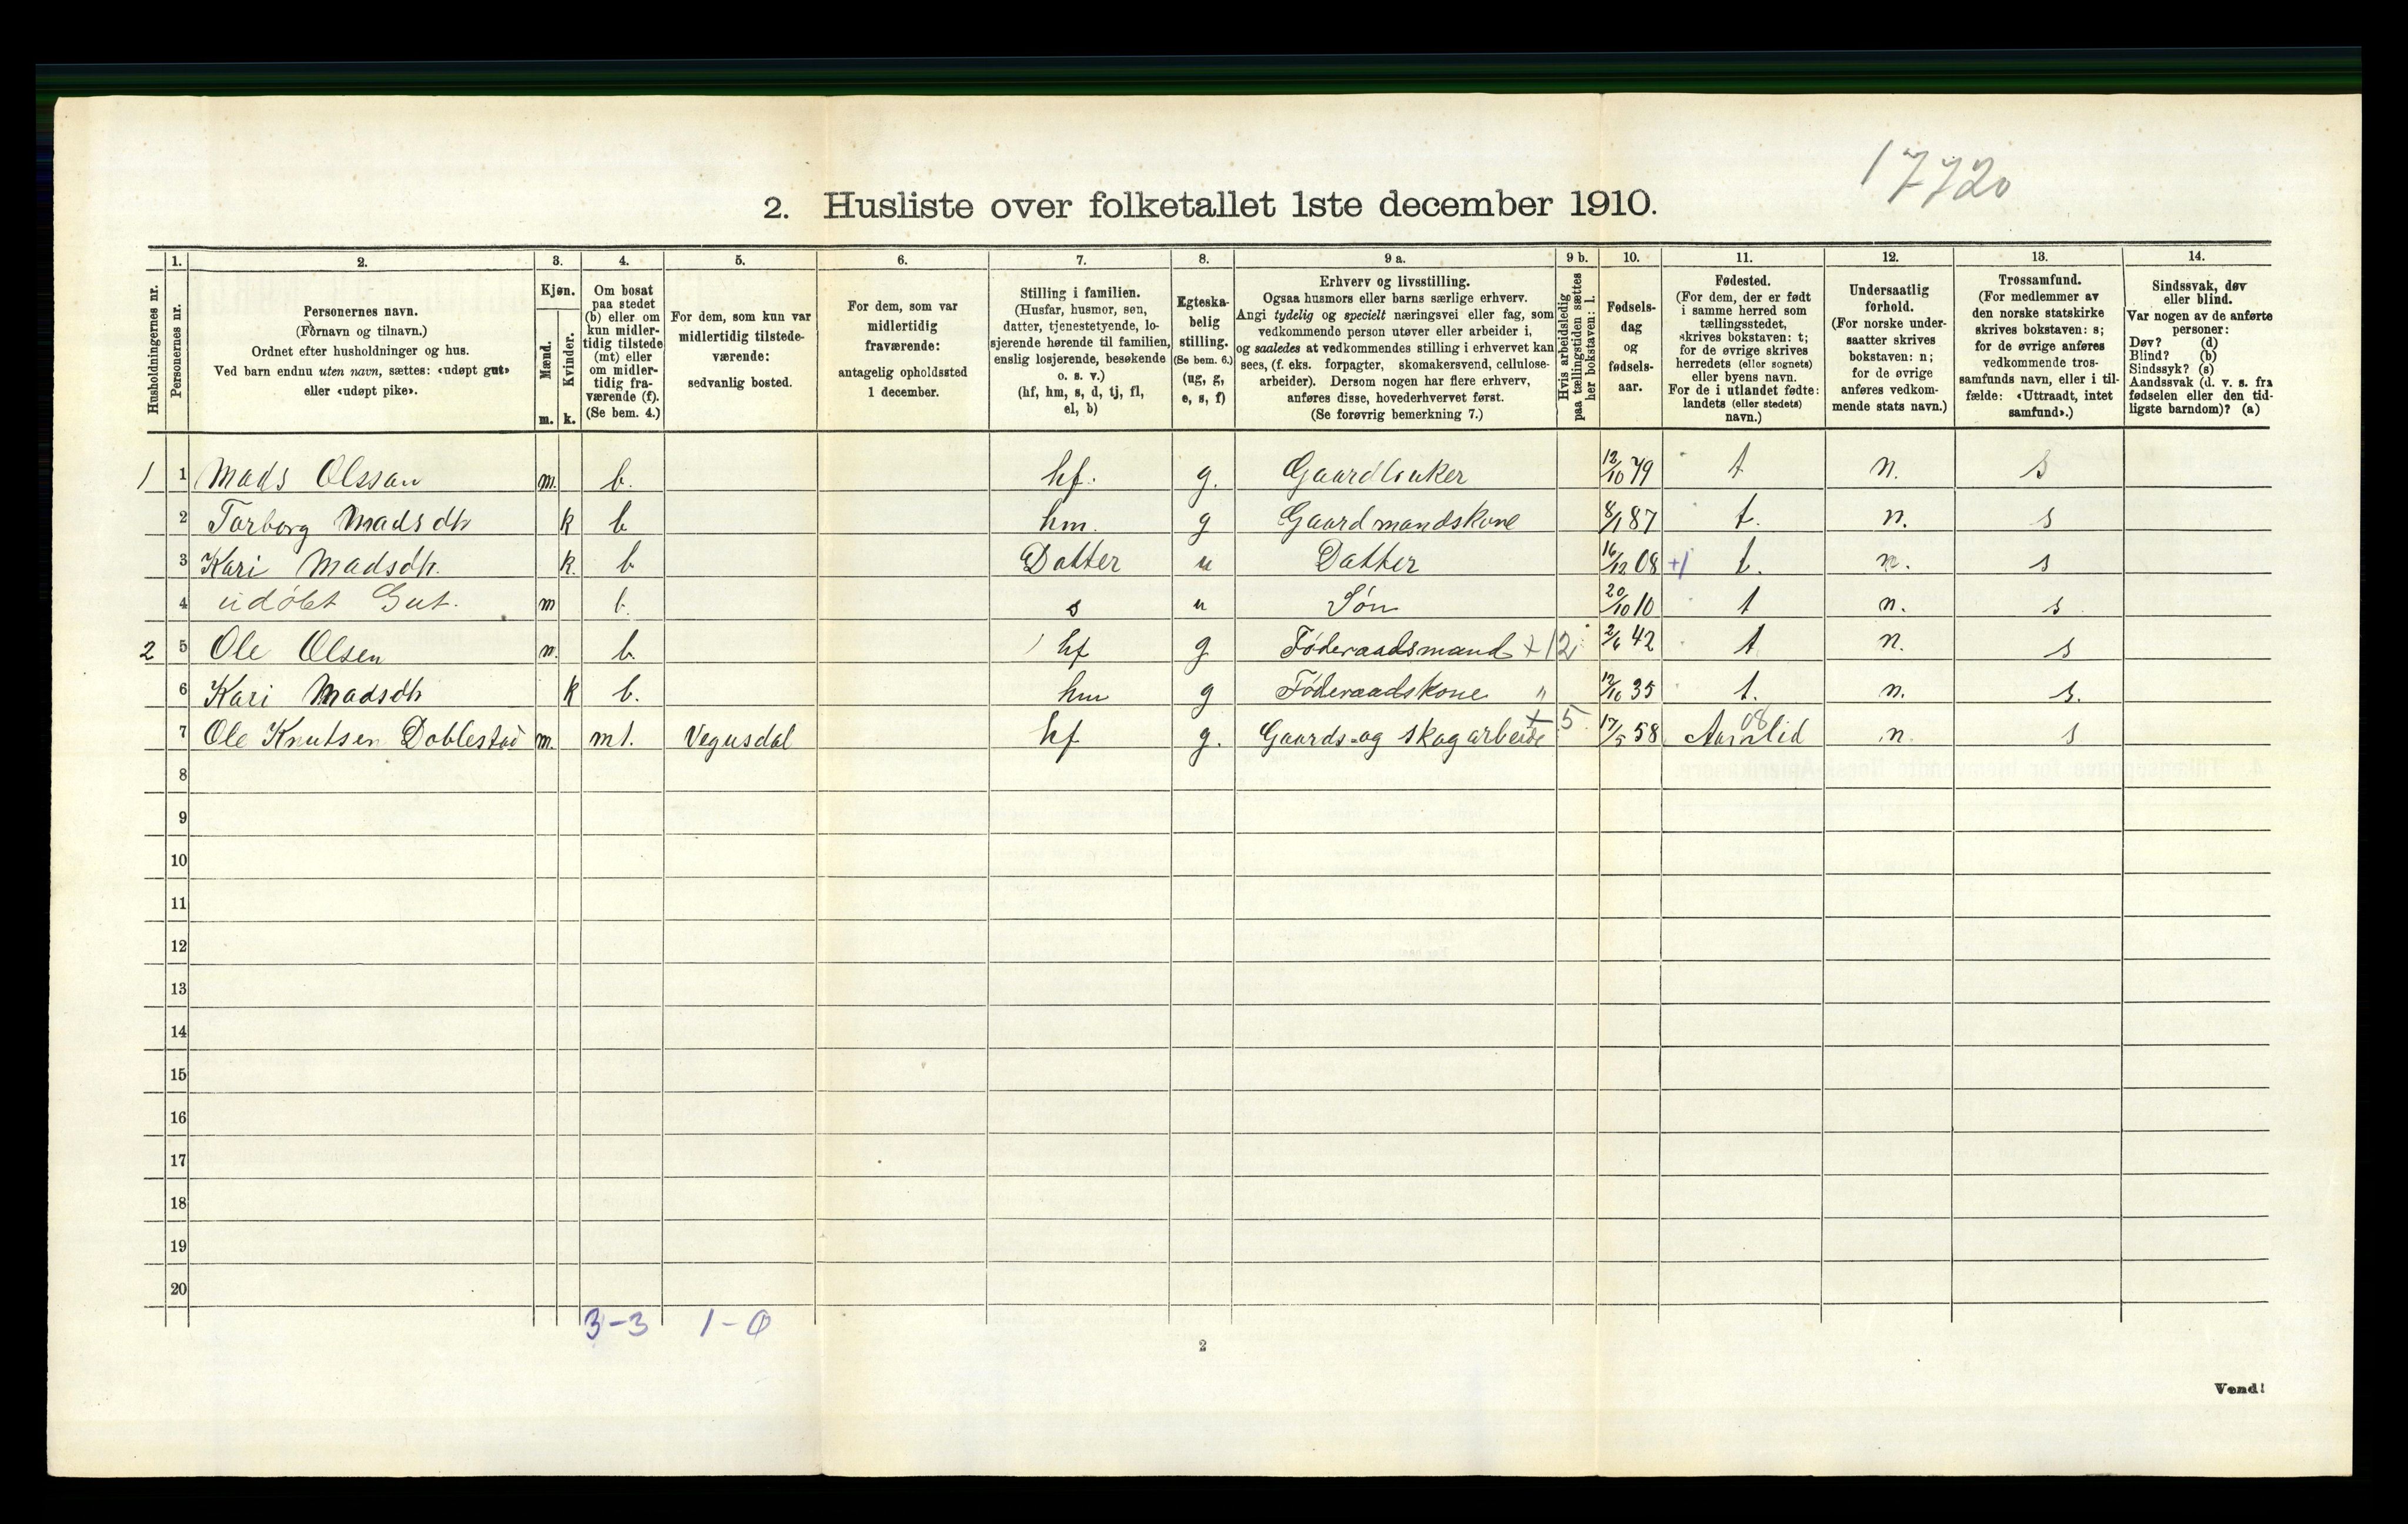 1772o
2. Husliste over folketallet 1ste december 1910.
Husholdningernes nr.
1.
Personernes nr.
2.
Personernes navn.
(Fornavn og tilnavn.)
Ordnet efter husholdninger og hus.
Ved barn endnu uten navn, sættes: «udøpt gut»
eller «udøpt pike».
3.
Kjøn.
Mænd.
Kvinder.
m. k.
4.
Om bosat
paa stedet
(b) eller om
kun midler-
tidig tilstede
(mt) eller
om midler-
tidig fra-
værende (f).
(Se bem. 4.)
5.
For dem, som kun var
midlertidig tilstede-
værende:
sedvanlig bosted.
6.
For dem, som var
midlertidig
fraværende:
antagelig opholdssted
1 december.
7.
Stilling i familien.
(Husfar, husmor, søn,
datter, tjenestetyende, lo-
sjerende hørende til familien,
enslig losjerende, besøkende
o. s. v.)
(hf, hm, s, d, tj, fl,
el, b)
8.
Egteska-
belig
stilling.
(Se bem. 6.)
(ug, g,
e, s, f)
9 a.
Erhverv og livsstilling.
Ogsaa husmors eller barns særlige erhverv.
Angi tydelig og specielt næringsvei eller fag, som
vedkommende person utøver eller arbeider i,
og saaledes at vedkommendes stilling i erhvervet kan
sees, (f. eks. forpagter, skomakersvend, cellulose-
arbeider). Dersom nogen har flere erhverv,
anføres disse, hovederhvervet først.
(Se forøvrig bemerkning 7.)
9 b.
Hvis arbeidsledig
paa tællingstiden sættes
her bokstaven: l.
10.
Fødsels-
dag
og
fødsels-
aar.
11.
Fødested.
(For dem, der er født
i samme herred som
tællingsstedet,
skrives bokstaven: t;
for de øvrige skrives
herredets (eller sognets)
eller byens navn.
For de i utlandet fødte:
landets (eller stedets)
navn.)
12.
Undersaatlig
forhold.
(For norske under-
saatter skrives
bokstaven: n;
for de øvrige
anføres vedkom-
mende stats navn.)
13.
Trossamfund.
(For medlemmer av
den norske statskirke
skrives bokstaven: s;
for de øvrige anføres
vedkommende tros-
samfunds navn, eller i til-
fælde: «Uttraadt, intet
samfund».)
14.
Sindssvak, døv
eller blind.
Var nogen av de anførte
personer:
Døv? (d)
Blind? (b)
Sindssyk? (s)
Aandssvak (d. v. s. fra
fødselen eller den tid-
ligste barndom)? (a)
1 1 Mads Olssan m. b. hf. g. Gaardbruker 12/10 79 t n. s
2 Torborg Madsdtr k b hm. g Gaardmandskone 8/1 87 t. n. s
3 Kari Madsdtr. k. b Datter u Datter 16/12 08 +1 t. n. s
4 udøbt Gut. m b. s u Søn 20/10 10 t n. s
2 5 Ole Olsen m. b. hf g Føderaadsmand +12 2/6 42 t n. s
6 Kari Madsdtr k b. hm g Føderaadskone " 12/10 35 t. n. s.
7 Ole Knutsen Doblestad m. mt. Vegusdal hf g. Gaards-og skogarbeide + 5 17/5 58 Aamlid 08 n. s
8
9
10
11
12
13
14
15
16
17
18
19
20
3-3 1-0
2
Vend!